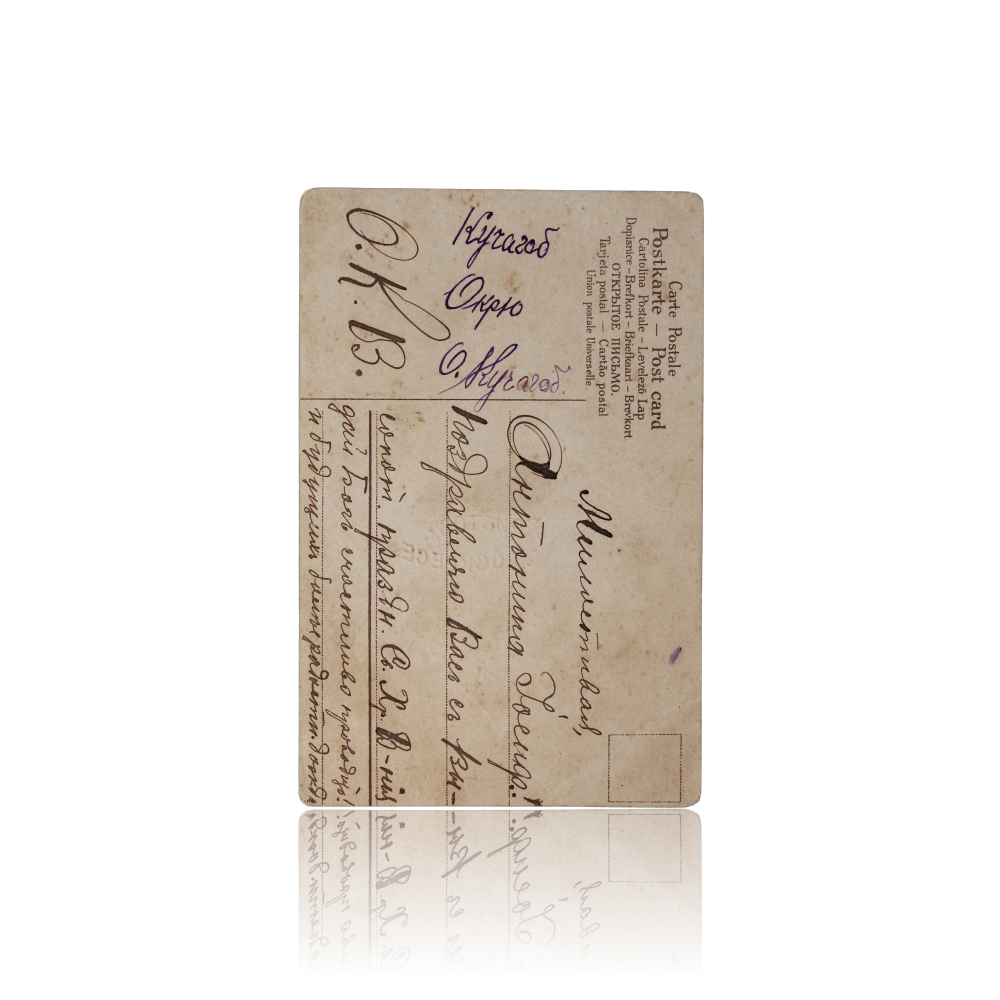 Carte Postale
Postkarte — Post card
Cartolina Postale – Levelező Lap
Dopisnice – Brefkort – Briefkaart – Brevkort
ОТКРЫТОЕ ПИСЬМО.
Tarjeta postal — Cartão postal
Union postale Universelle
Кучагоб
Окрю
О. Кучагоб.
О. К. В.
Милостивая,
Антонина Госпд.
Поздравляю Васъ съ
праздн. Св. Хр. В-нія
дай Богъ счастливо проводить!
и будущихъ